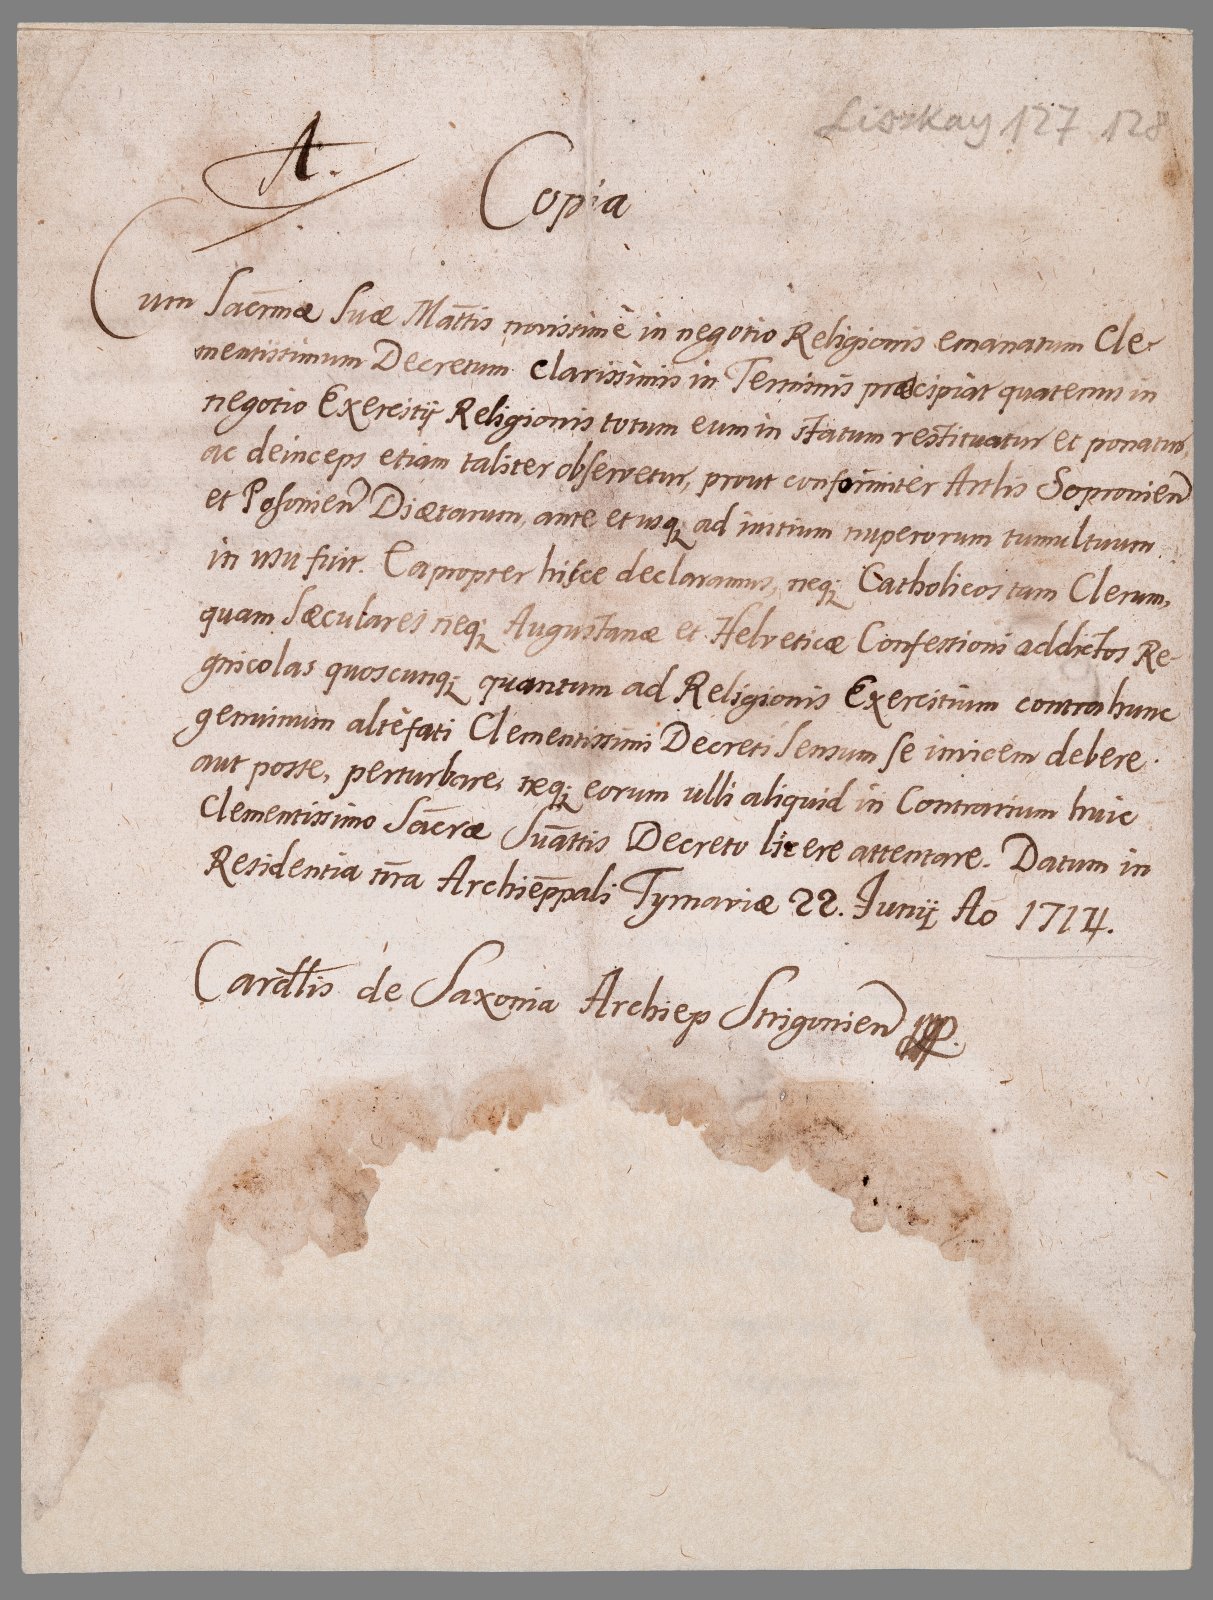 Liszkay 127 128
A.
Copia
Cum Sacrmae Suae Mattis novissimè in negotio Religionis emanatum Cle-
mentissimum Decretum clarissimis in Terminis praecipiat quatenus in
negotio Exercitij Religionis totum eum in statum restituatur et ponatur,
ac deinceps etiam taliter observetur, prout conformiter Artlis Soproniens
et Posoniens Diaetarum, ante et usq; ad initium nuperorum tumultuum
in usu fuit. Eapropter hisce declaramus, neq; Catholicos tam Clerum,
quam Saeculares neq; Augustanae et Helveticae Confessioni addictos Re-
gnicolas quoscunq; quantum ad Religionis Exercitium contra hunc
genuinum altefati Clementissimi Decreti sensum se invicem debere
aut posse, perturbare, neq; eorum ulli aliquid in Contrarium huic
Clementissimo Sacrae Suattis Decreto licere attentare. Datum in
Residentia nra Archieppali Tyrnaviae 22. Junij Ao 1714.
Cardlis de Saxonia Archiep Strigonien mp.